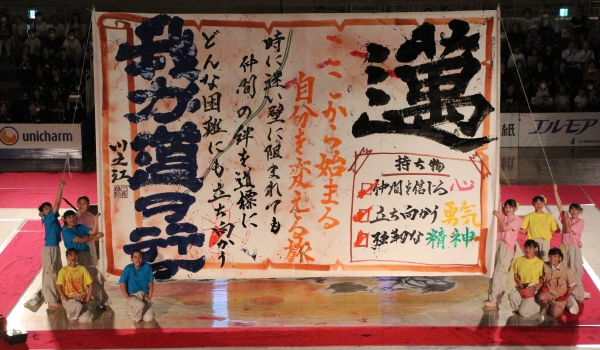 邁
ここから始まる
自分を変える旅
時に迷い壁に阻まれても
仲間の絆を道標に
どんな困難にも立ち向かう
我が道ヲ行け
川之江
持ち物
仲間を信じる心
立ち向かう勇気
強靭な精神
unicharm
紙
エルモア